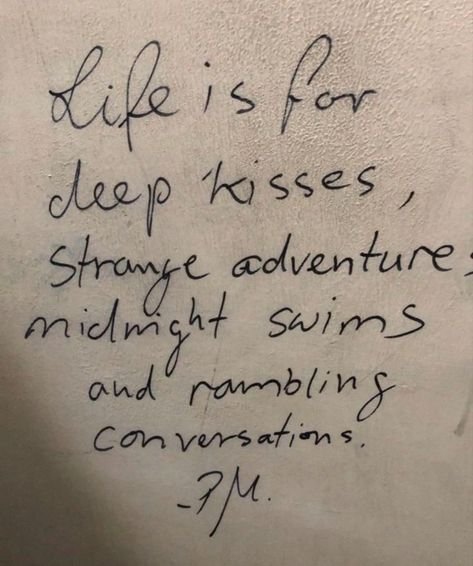 Life is for
deep kisses,
strange adventures
midnight swims
and rambling
conversations.
-P.M.